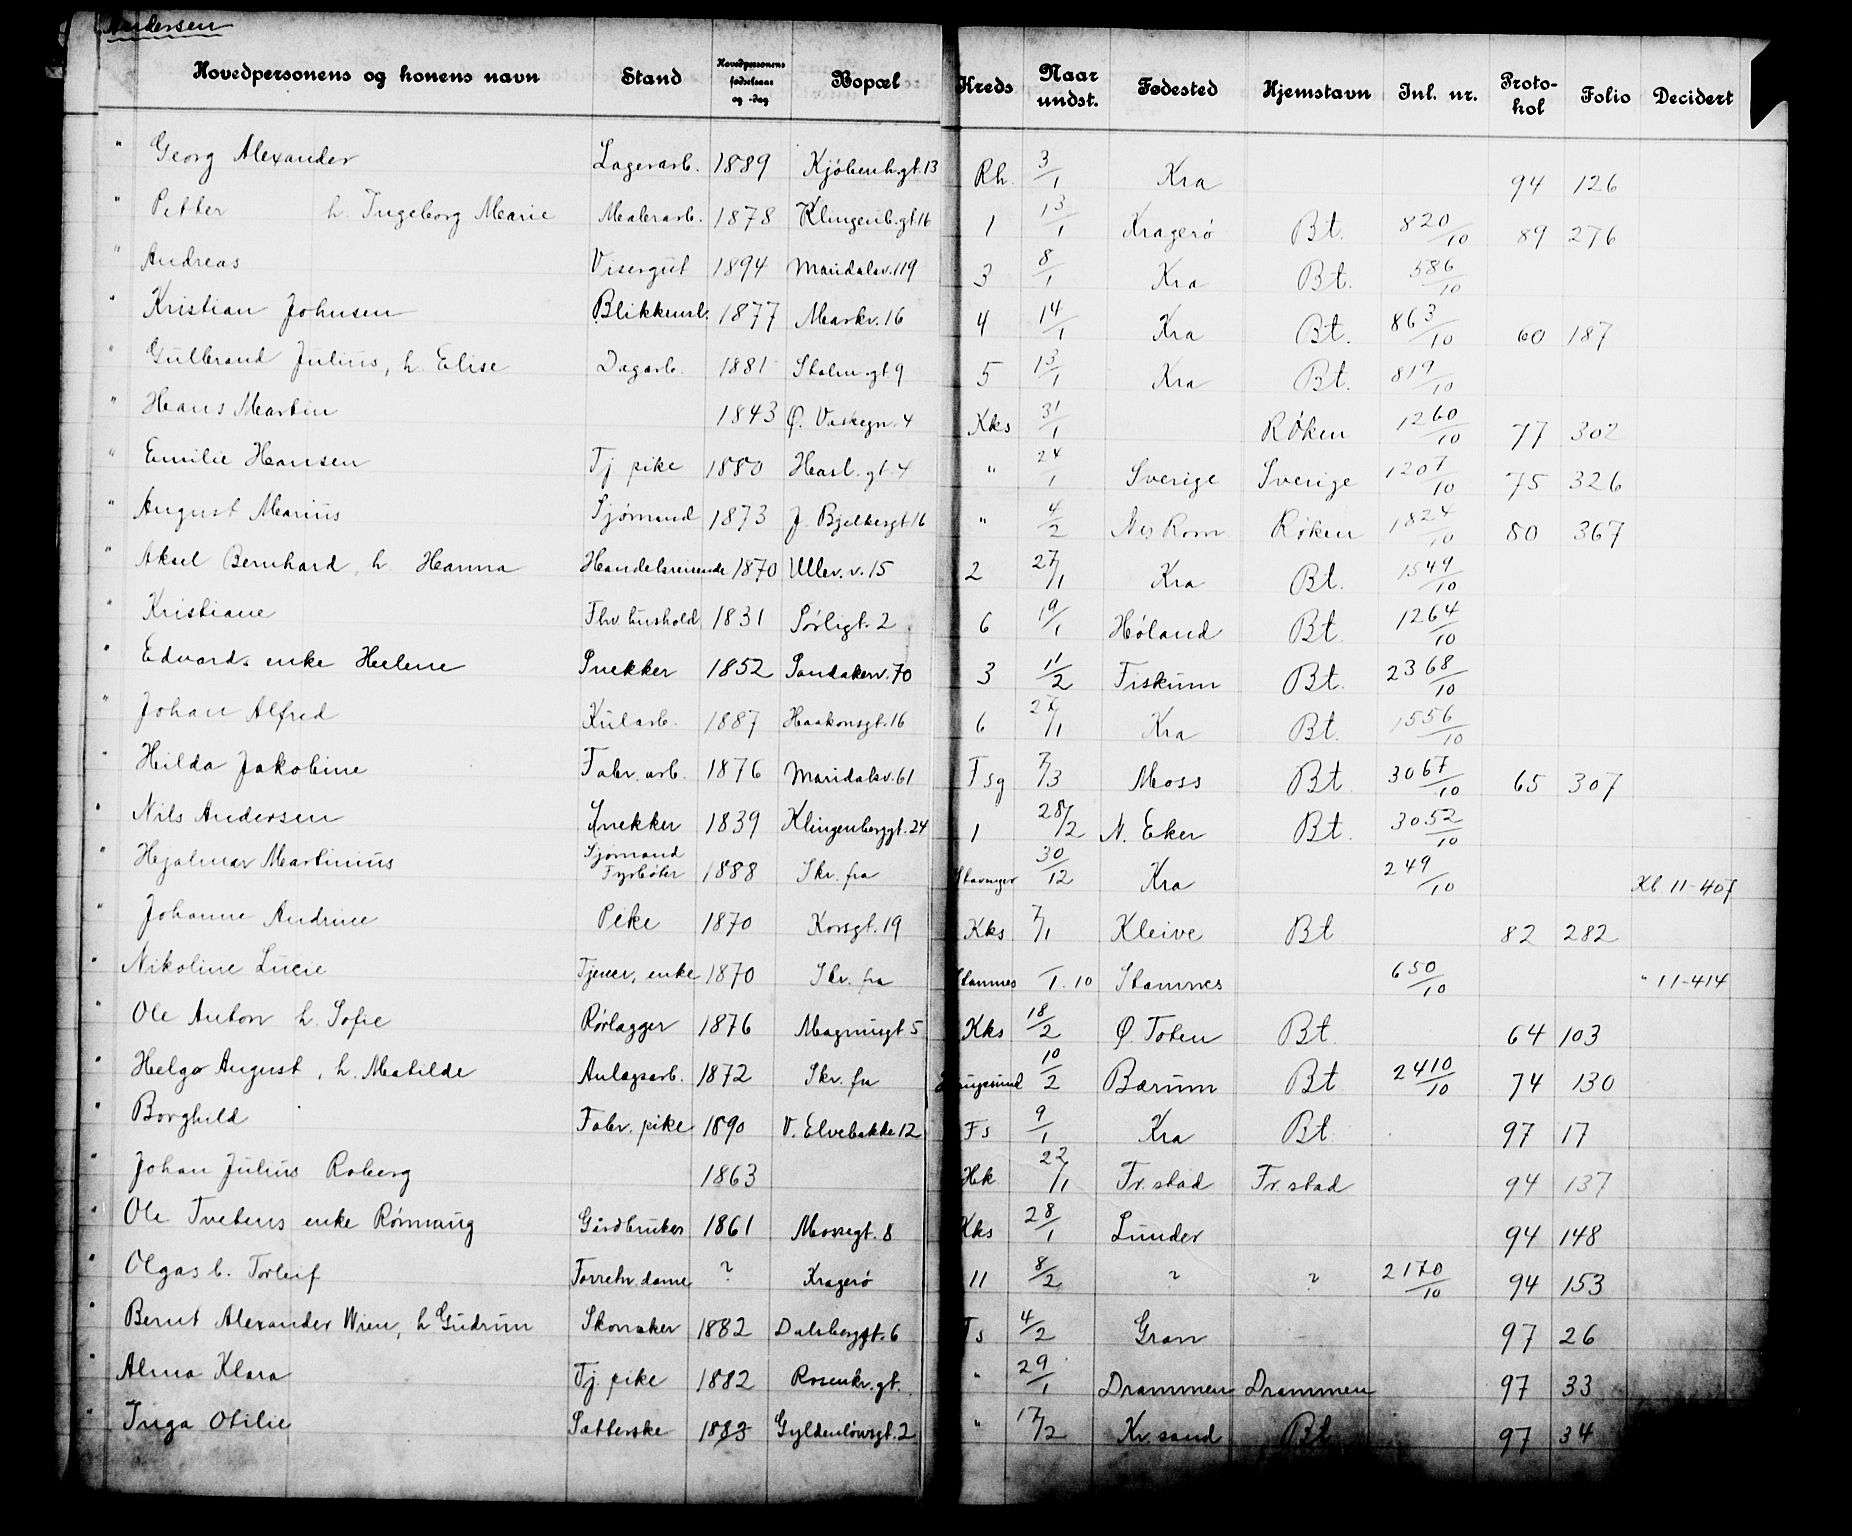 Andersen
Hovedpersonens og konens navn Stand Hovedpersonens fødselsaar og -dag Bopæl Kreds Naar undst. Fødested Hjemstavn Inl. nr. Proto-kol Folio Decidert
" Georg Alexander Lagerarb. 1889 Kjøbenh.gt. 13 Rh. 3/1 Kra 94 126
" Petter h. Ingeborg Marie Malerarb. 1878 Klingenb.gt. 16 1 13/1 Kragerø Bt. 820/10 89 276
" Andreas Visergut 1894 Maridalsv. 119 3 8/1 Kra Bt. 586/10
" Kristian Johnsen Blikkensl. 1877 Markv. 16 4 14/1 Kra Bt. 863/10 60 187
" Gulbrand Julius, h. Elise Dagarb. 1881 Stolm.gt 9 5 13/1 Kra Bt. 819/10
" Hans Martin 1843 Ø. Vaskegn. 4 Kks 31/1 Røken 1260/10 77 302
" Emilie Hansen Tj pike 1880 Hasl. gt. 4 " 24/1 Sverige Sverige 1207/10 75 326
" August Marius Sjømand 1873 J. Bjelkesgt. 16 " 4/2 Røken 1824/10 80 367
" Aksel Bernhard, h. Hanna Handelsreisende 1870 Ullev. v. 15 2 27/1 Kra Bt. 1549/10
" Kristiane Fhv hushold 1831 Sørligt. 2 6 19/1 Høland Bt. 1264/10
" Edvards enke Helene Snekker 1852 Sandakerv. 70 3 11/2 Fiskum Bt. 2368/10
" Johan Alfred Kularb. 1887 Haakonsgt. 16 6 27/1 Kra Bt. 1556/10
" Hilda Jakobine Fabr. arb. 1876 Maridalsv. 61 Fsg 7/3 Moss Bt 3067/10 65 307
" Nils Andersen Snekker 1839 Klingenberggt. 24 1 28/2 N. Eker Bt. 3052/10
" Hjalmar Martinius Sjømand Fyrbøter 1888 Skr. fra Stavanger 30/12 Kra 249/10 Kl 11-407
" Johanne Andrine Pike 1870 Korsgt. 19 Kks 7/1 Kleive Bt 82 282
" Nikoline Lucie Tjener, enke 1870 Skr. fra Stamnes 1. 10 Stamnes 650/10 " 11-414
" Ole Anton h. Sofie Rørlægger 1876 Magnusgt 5 Kks 18/2 Ø. Toten Bt. 64 103
" Helge August, h. Matilde Anlægsarb. 1872 Skr. fra Haugesund 10/2 Bærum Bt 2410/10 74 130
" Borghild Fabr. pike 1890 V. Elvebakke 12 Fs 9/1 Kra Bt 97 17
" Johan Julius Roberg 1863 Hk 22/1 Fr. stad Fr. stad 94 137
" Ole Tvetens enke Rønnaug Gårdbruker 1861 Mossegt. 8 Kks 28/1 Lunder 94 148
" Olgas b. Torleif Forretn. dame ? Kragerø 11 8/2 ? ? 2170/10 94 153
" Bernt Alexander Wien, h Gudrun Skomaker 1882 Dalsberggt. 6 Fs 4/2 Gran 97 26
" Alma Klara Tj. pike 1882 Rosenkr. gt. " 29/1 Drammen Drammen 97 33
" Inga Otilie Sætterske 1883 Gyldenløvsgt. 2 " 17/2 Kr. sand Bt 97 34